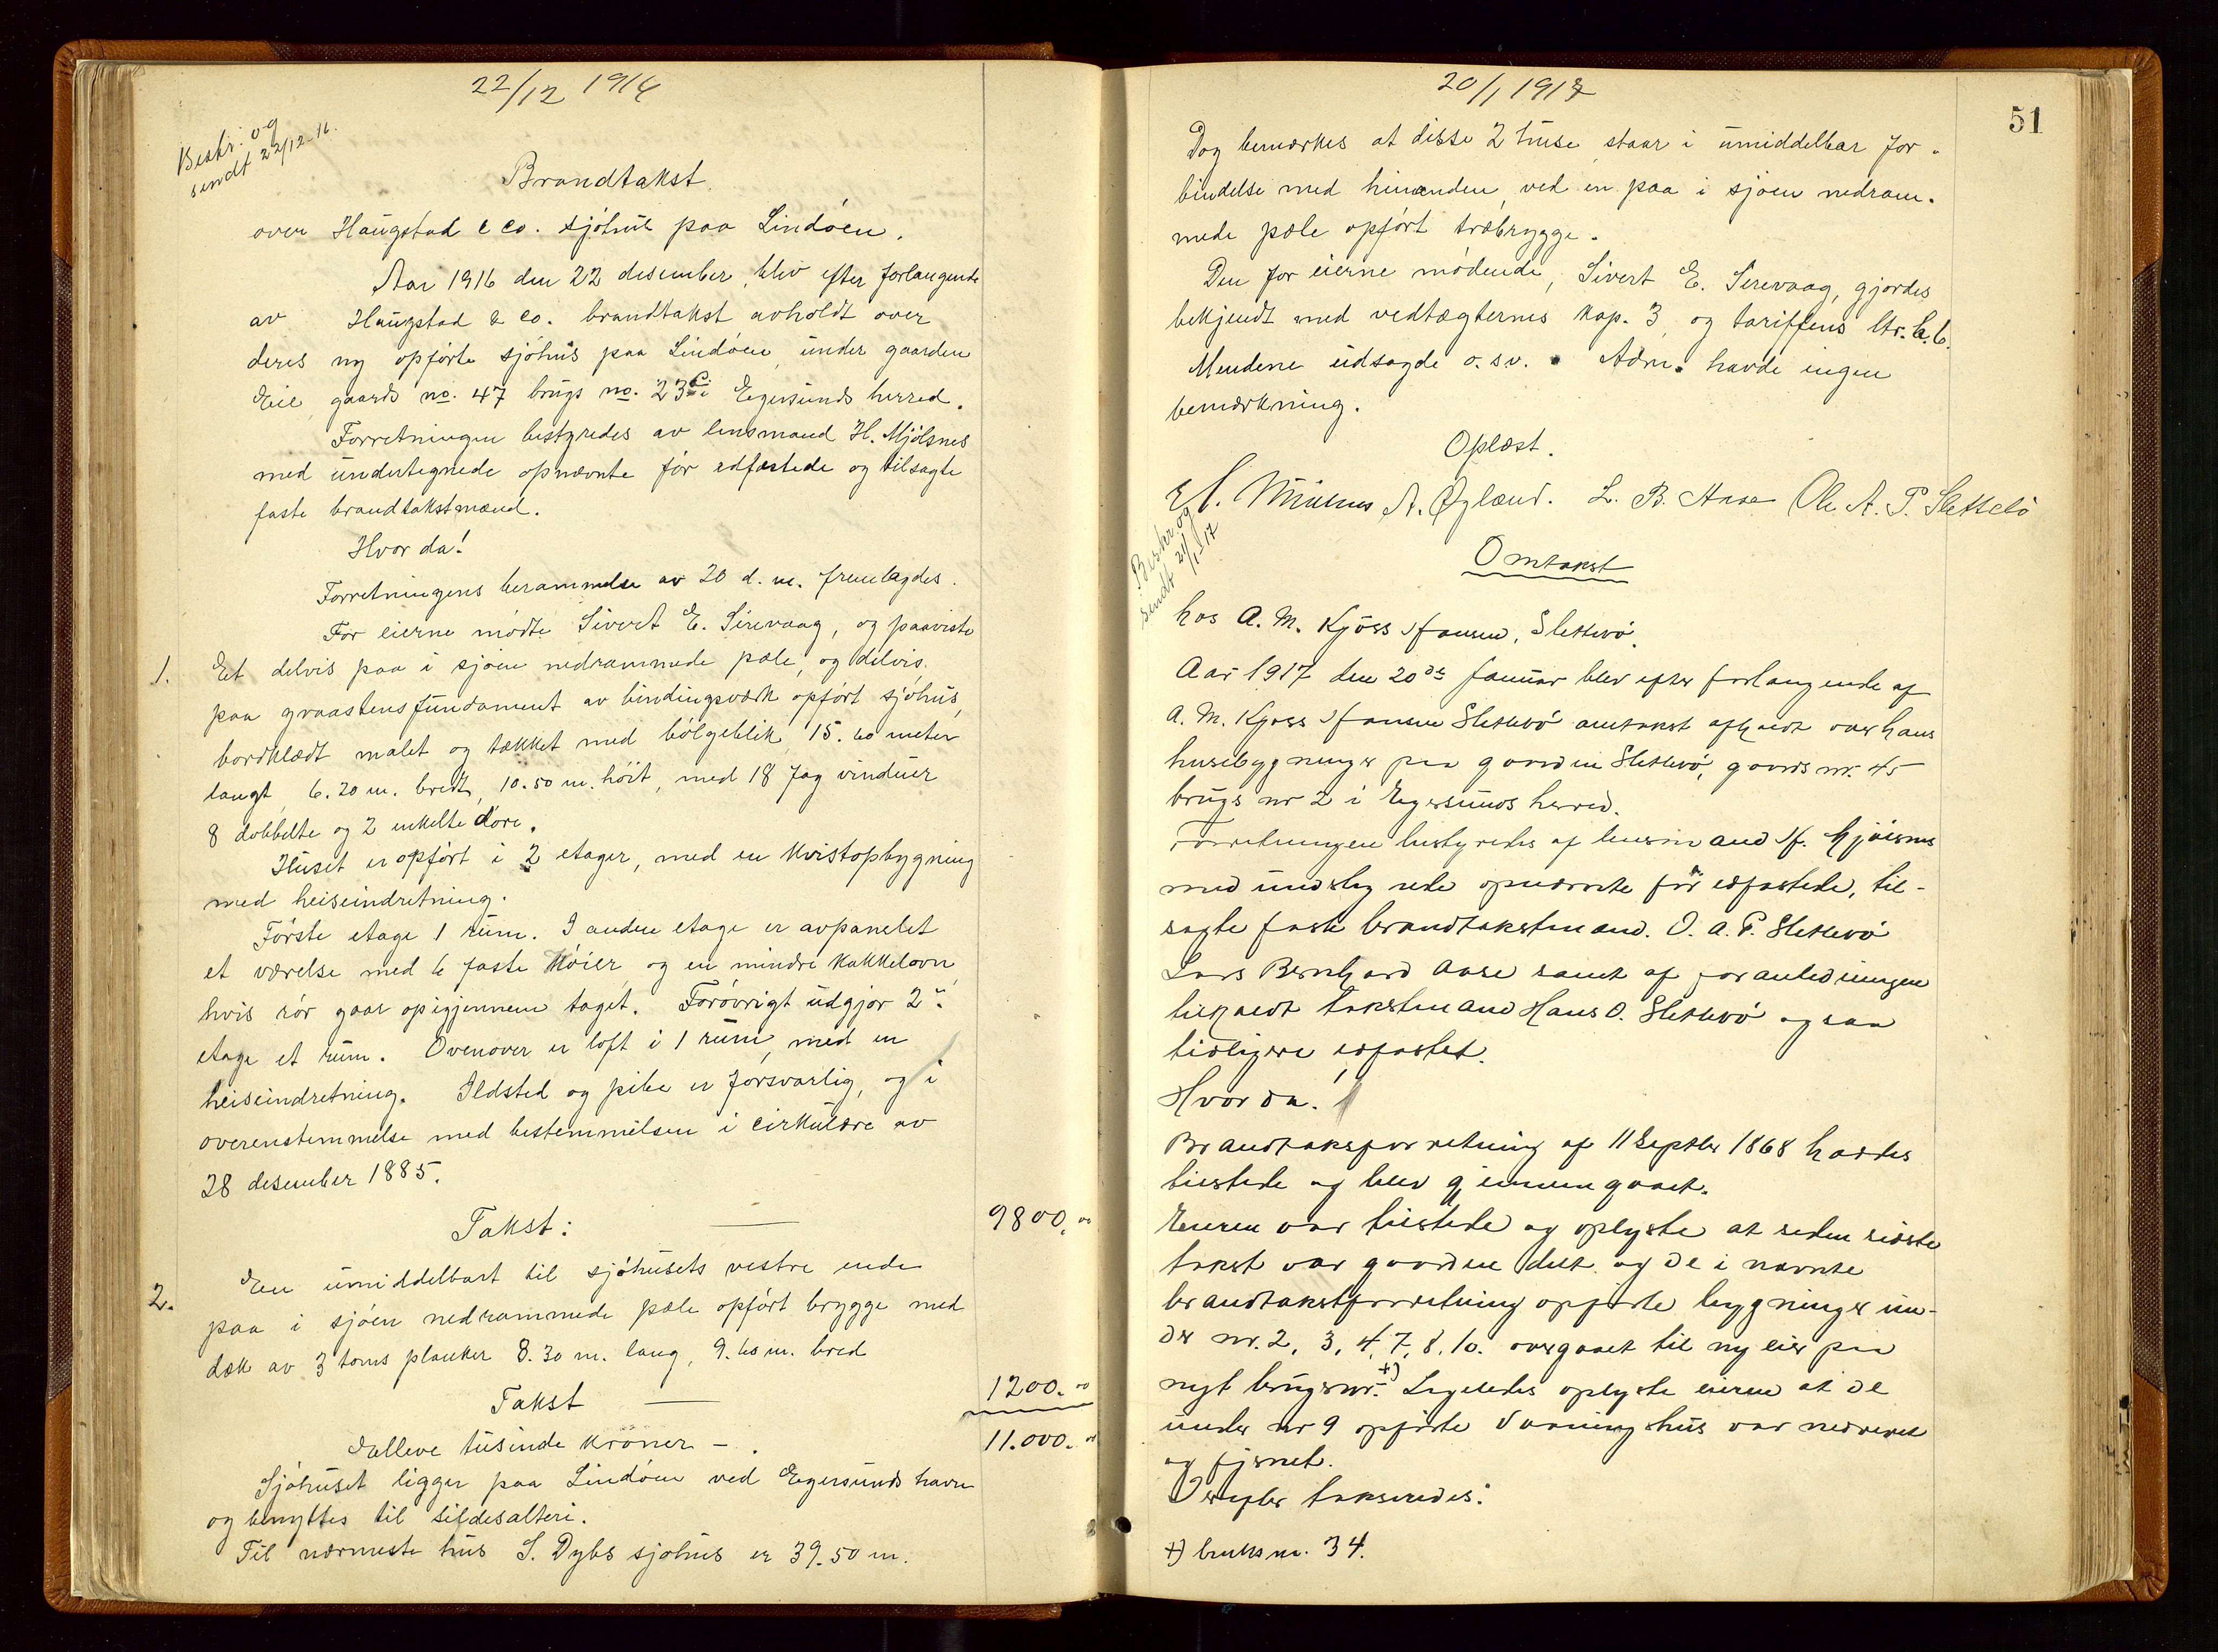 22/12 1916
Beskr. og
sendt 22/12-16.
Brandtakst
over Haugstad & Co. sjøhus paa Lindøen.
Aar 1916 den 22 desember, blev efter forlangende
av Haugstad & Co. brandtakst avholdt over
deres ny opførte sjøhus paa Lindøen under gaarden
Eie gaards no. 47 brugs no. 23 i Egersunds herred.
Forretningen bestyredes av lensmand H. Mjølsnes
med undertegnede opnævnte før edfæstede og tilsagte
faste brandtakstmænd.
Hvor da!
Forretningens berammelse av 20 d. m. fremlagdes.
For eierne mødte Sivert E. Sirevaag, og paaviste
1. Et delvis paa i sjøen nedrammede pæle, og delvis
paa graastensfundament av bindingsværk opført sjøhus,
bordklædt malet og tækket med bølgeblik 15.60 meter
langt, 6.20 m. bredt, 10.50 m. høit, med 18 fag vinduer
8 dobbelte og 2 enkelte døre.
Huset er opført i 2 etager, med en kvistopbygning
med heiseindretning.
Første etage 1 rum. I anden etage er avpanelet
et værelse med 6 faste køier og en mindre kakkelovn,
hvis rør gaar opigjennem taget. Forøvrigt udgjør 2n
etage et rum. Ovenover er loft i 1 rum, med en
heiseindretning. Ildsted og pibe er forsvarlig, og i
overenstemmelse med bestemmelsen i cirkulære av
28 desember 1885.
Takst: — 9800.00
2. En umiddelbart til sjøhusets vestre ende
paa i sjøen nedrammede pæle opført brygge med
dæk av 3 toms planker 8.30 m. lang, 9.60 m. bred
Takst — 1200.00
Elleve tusinde kroner — . 11.000.00
Sjøhuset ligger paa Lindøen ved Egersunds havn
og benyttes til sildesalteri.
Til nærmeste hus S. Dybs sjøhus er 39.50 m.
20/1 1917
51
Dog bemærkes at disse 2 huse staar i umiddelbar for-
bindelse med hinanden, ved en paa i sjøen nedram-
mede pæle opført træbrygge.
Den for eierne mødende, Sivert E. Sirevaag, gjordes
bekjendt med vedtægternes kap. 3 og tariffens ltr.
Mendene udsagde o. sv. Adm. havde ingen
bemærkning.
Oplæst.
H. Mjølsnes A. Øglænd. L. B. Aase Ole A. P. Slettebø
Beskr. og
sendt 21/1-17
Omtakst
hos A. M. Kjøss Hansen, Slettebø.
Aar 1917 den 20de Januar blev efter forlangende af
A. M. Kjøss Hansen Slettebø omtakst afholdt over hans
husebygninger paa gaarden Slettebø, gaards nr. 45
brugs nr 2 i Egersunds herred.
Forretningen bestyredes af lensmand H. Mjølsnes
med undertegnede opnævnte før edfæstede, til-
sagte faste brandtakstmænd. O. A. P. Slettebø
Lars Bernhard Aase samt af foranledningen
tilkaldt takstmand Hans O. Slettebø ogsaa
tidligere edfæstet.
Hvor da!
Brandtakstforretning af 11 Septbr 1868 havdes
tilstede og blev gjennemgaaet.
Eieren var tilstede og oplyste at siden sidste
takst var gaarden delt og de i nævnte
brandtakstforretning opførte bygninger un-
der nr. 2, 3, 4, 7, 8, 10. overgaaet til ny eier paa
nyt brugsnr. +) Ligeledes oplyste eieren at de
under nr 9 opførte vaaningshus var nedrevet
og fjernet.
Derefter takseredes:
+) bruksnr. 34.